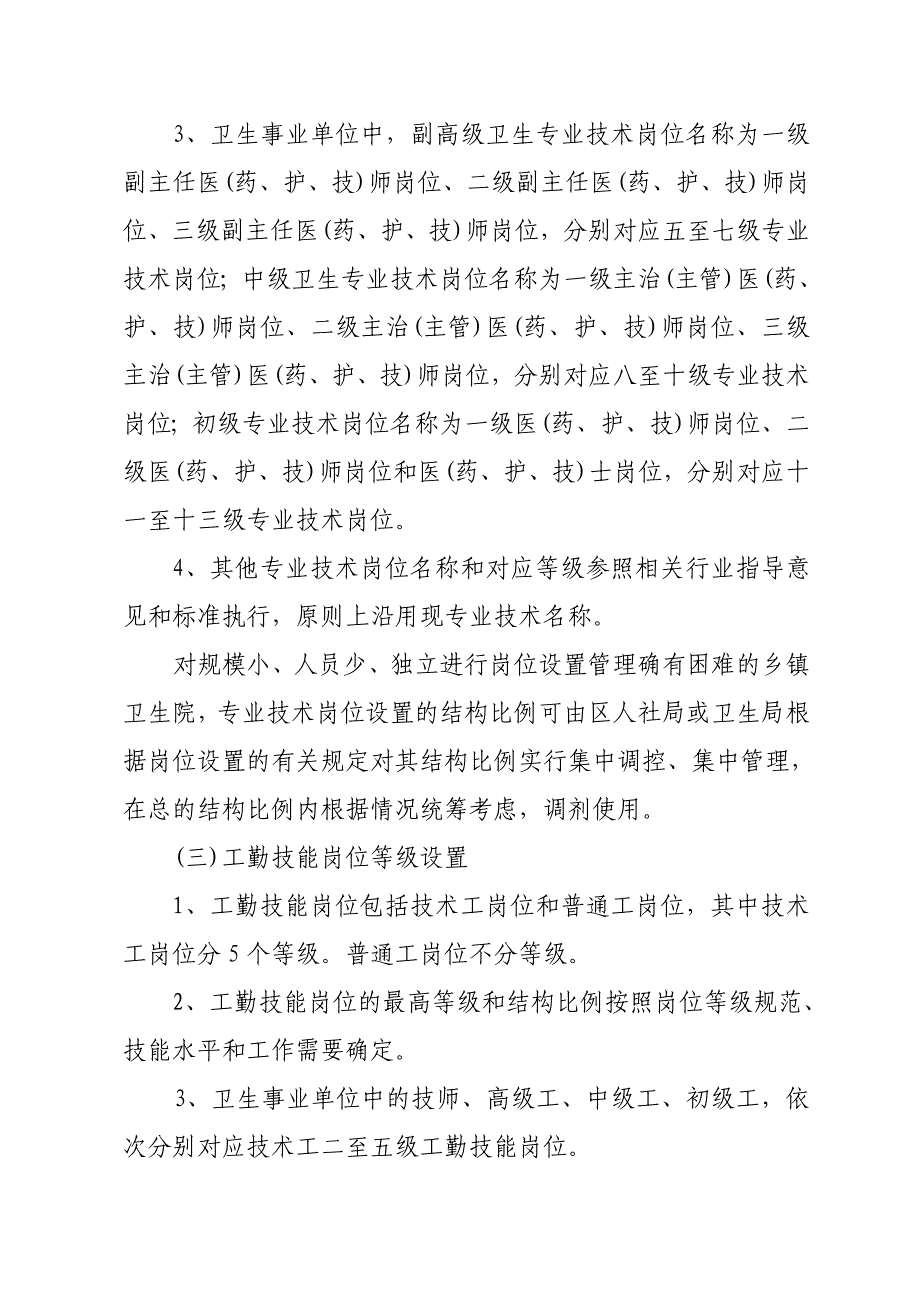 3、卫生事业单位中，副高级卫生专业技术岗位名称为一级
副主任医(药、护、技)师岗位、二级副主任医(药、护、技)师岗
位、三级副主任医(药、护、技)师岗位，分别对应五至七级专业
技术岗位；中级卫生专业技术岗位名称为一级主治(主管)医(药、
护、技)师岗位、二级主治(主管)医(药、护、技)师岗位、三级
主治(主管)医(药、护、技)师岗位，分别对应八至十级专业技术
岗位；初级专业技术岗位名称为一级医(药、护、技)师岗位、二
级医(药、护、技)师岗位和医(药、护、技)士岗位，分别对应十
一至十三级专业技术岗位。
4、其他专业技术岗位名称和对应等级参照相关行业指导意
见和标准执行，原则上沿用现专业技术名称。
对规模小、人员少、独立进行岗位设置管理确有困难的乡镇
卫生院，专业技术岗位设置的结构比例可由区人社局或卫生局根
据岗位设置的有关规定对其结构比例实行集中调控、集中管理，
在总的结构比例内根据情况统筹考虑，调剂使用。
(三)工勤技能岗位等级设置
1、工勤技能岗位包括技术工岗位和普通工岗位，其中技术
工岗位分5个等级。普通工岗位不分等级。
2、工勤技能岗位的最高等级和结构比例按照岗位等级规范、
技能水平和工作需要确定。
3、卫生事业单位中的技师、高级工、中级工、初级工，依
次分别对应技术工二至五级工勤技能岗位。